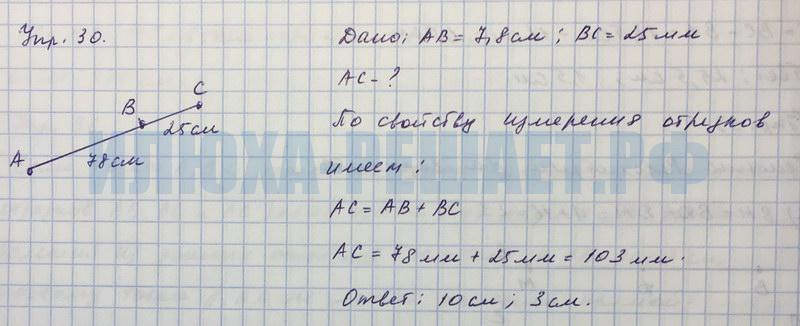 Упр. 30.
Дано: AB = 7,8 см; BC = 25 мм
AC - ?
По свойству измерения отрезков
имеем:
AC = AB + BC
AC = 78 мм + 25 мм = 103 мм.
Ответ: 10 см; 3 см.
A
B
C
78 см
25 см
ИЛЮХА-РЕШАЕТ.РФ